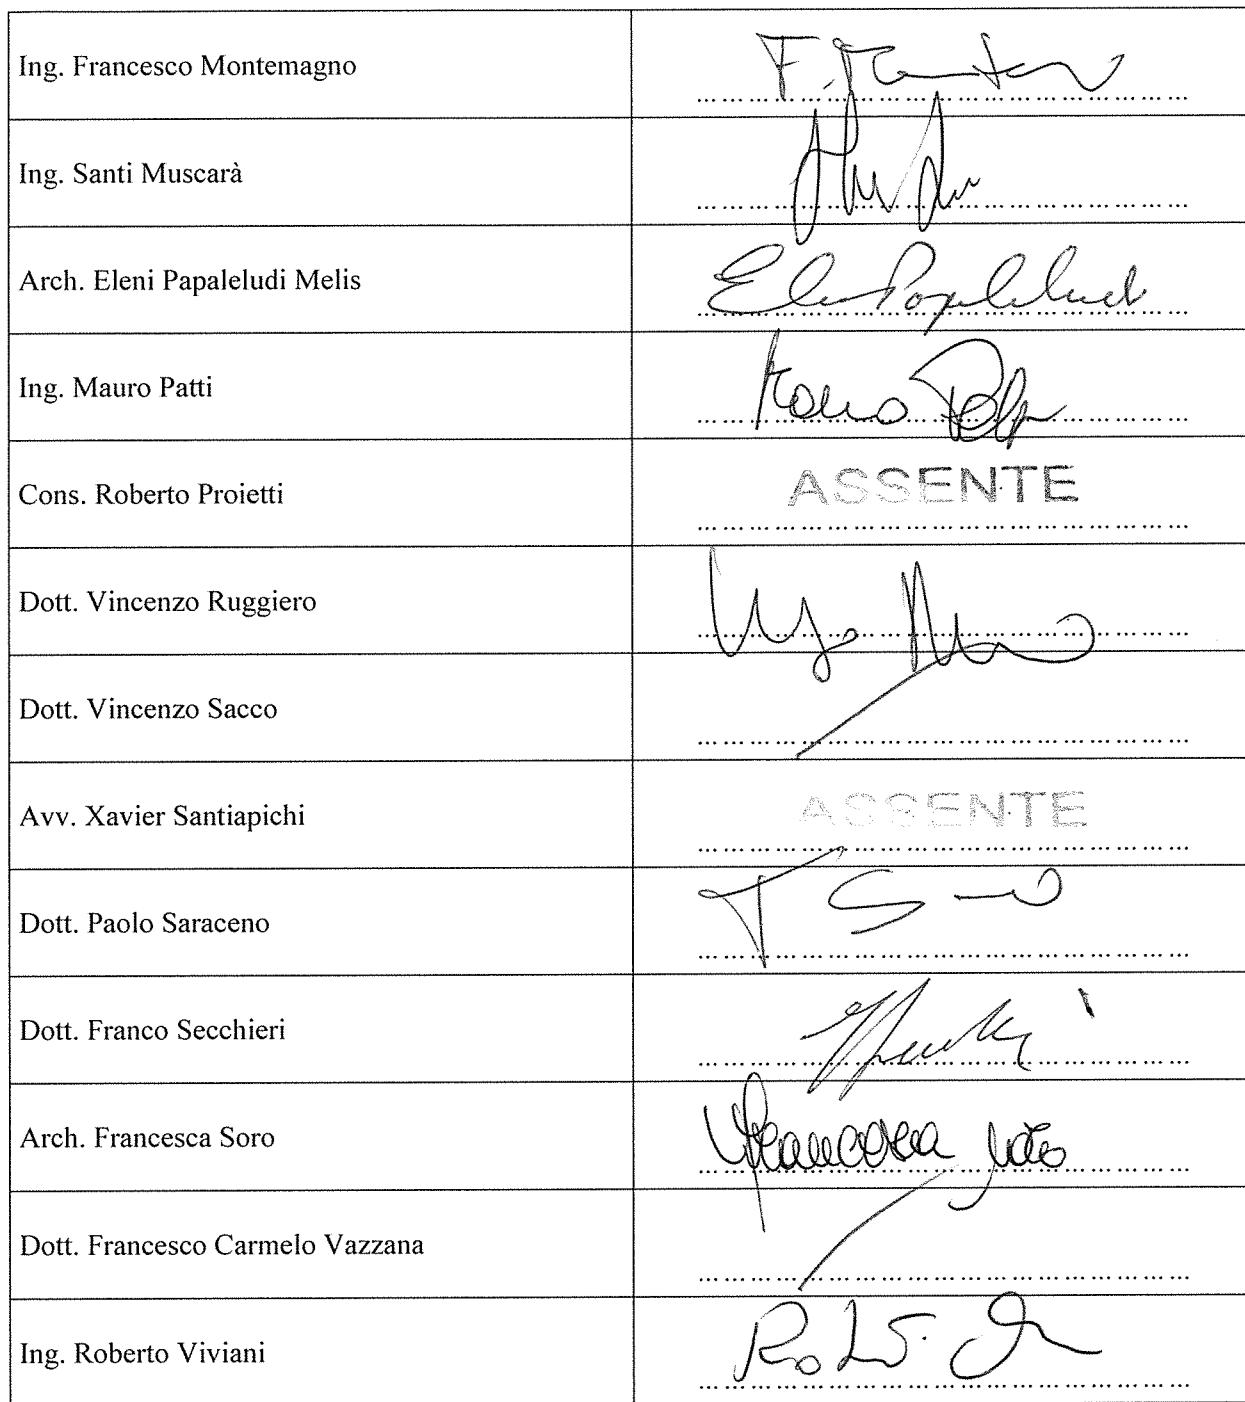 Ing. Francesco Montemagno
Ing. Santi Muscarà
Arch. Eleni Papaleludi Melis
Ele Papaleludi
Ing. Mauro Patti
Mauro Patti
Cons. Roberto Proietti
ASSENTE
Dott. Vincenzo Ruggiero
Dott. Vincenzo Sacco
Avv. Xavier Santiapichi
ASSENTE
Dott. Paolo Saraceno
Dott. Franco Secchieri
Arch. Francesca Soro
Francesca Soro
Dott. Francesco Carmelo Vazzana
Ing. Roberto Viviani